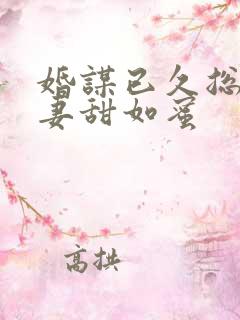 婚謀已久总
妻甜如蜜
高拱